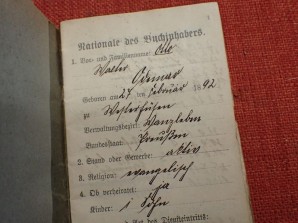 Nationale des Buchinhabers.
1. Vor- und Familienname: Otto
Walter
Geboren am 27 ten Februar 1892
zu Westerhüsen
Verwaltungsbezirk: Wanzleben
Bundesstaat: Preußen
2. Stand oder Gewerbe: aktiv
3. Religion: evangelisch
4. Ob verheiratet: ja
Kinder: 1 Sohn
des Diensteintritts: